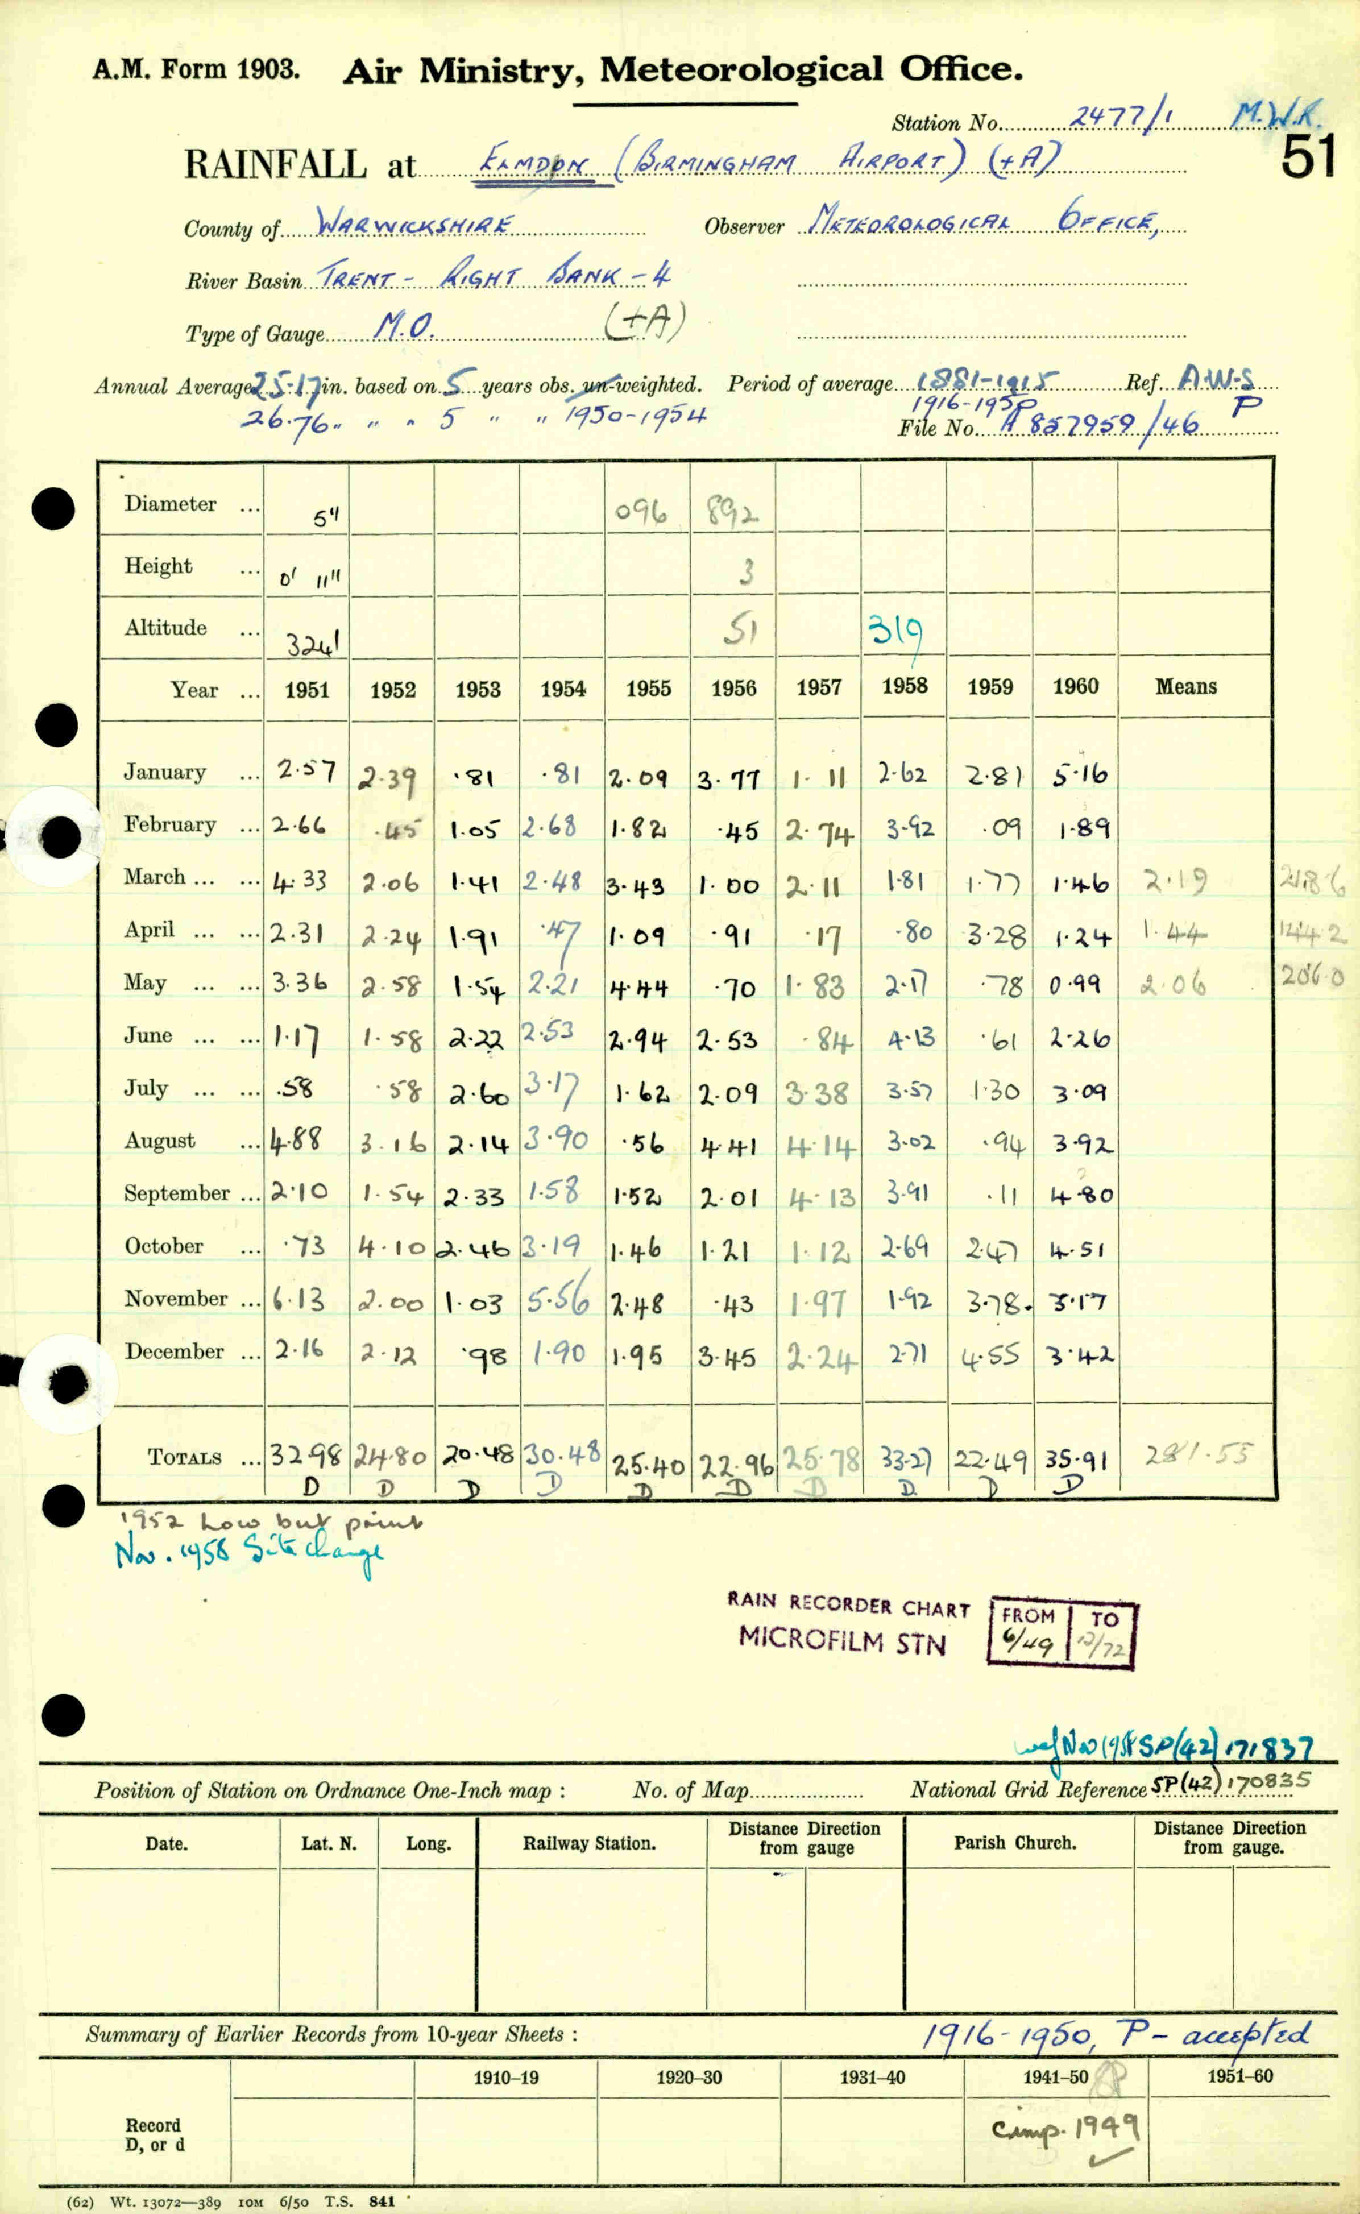 A.M. Form 1903. Air Ministry, Meteorological Office.
Station No. 2477/1 M.W.R.
51
RAINFALL at ELMDON (BIRMINGHAM AIRPORT) (+A)
County of WARWICKSHIRE Observer METEOROLOGICAL OFFICE,
River Basin TRENT - RIGHT BANK - 4
Type of Gauge M.O. (+A)
Annual Average 25.17 in. based on 5 years obs. un-weighted. Period of average 1881-1915 Ref. A.W.S
1916-1950 P
26.76 " " " 5 " " 1950-1954 File No. A 857959/46
Diameter ... 5" 096 892
Height ... 0' 11" 3
Altitude ... 324' 51 319
Year ... 1951 1952 1953 1954 1955 1956 1957 1958 1959 1960 Means
January ... 2.57 2.39 .81 .81 2.09 3.77 1.11 2.62 2.81 5.16
February ... 2.66 .45 1.05 2.68 1.82 .45 2.74 3.92 .09 1.89
March ... ... 4.33 2.06 1.41 2.48 3.43 1.00 2.11 1.81 1.77 1.46 2.19 21.86
April ... ... 2.31 2.24 1.91 .47 1.09 .91 .17 .80 3.28 1.24 1.44 1442
May ... ... 3.36 2.58 1.54 2.21 4.44 .70 1.83 2.17 .78 0.99 2.06 2060
June ... ... 1.17 1.58 2.22 2.53 2.94 2.53 .84 4.13 .61 2.26
July ... ... .58 .58 2.60 3.17 1.62 2.09 3.38 3.57 1.30 3.09
August ... 4.88 3.16 2.14 3.90 .56 4.41 4.14 3.02 .94 3.92
September ... 2.10 1.54 2.33 1.58 1.52 2.01 4.13 3.91 .11 4.80
October ... .73 4.10 2.46 3.19 1.46 1.21 1.12 2.69 2.47 4.51
November ... 6.13 2.00 1.03 5.56 2.48 .43 1.97 1.92 3.78. 3.17
December ... 2.16 2.12 .98 1.90 1.95 3.45 2.24 2.71 4.55 3.42
TOTALS ... 32.98 24.80 20.48 30.48 25.40 22.96 25.78 33.27 22.49 35.91 .55
D D D D D D D D D D
1952 Low but
Nov. 1958 Site change
RAIN RECORDER CHART FROM TO
MICROFILM STN 6/49 12/72
wef Nov 1958 SP(42) 171837
Position of Station on Ordnance One-Inch map : No. of Map National Grid Reference SP(42) 170835
Date. Lat. N. Long. Railway Station. Distance from gauge Direction Parish Church. Distance from gauge. Direction
Summary of Earlier Records from 10-year Sheets : 1916-1950, P - accepted
1910-19 1920-30 1931-40 1941-50 1951-60
Record
D, or d
1949
(62) Wt. 13072—389 10M 6/50 T.S. 841